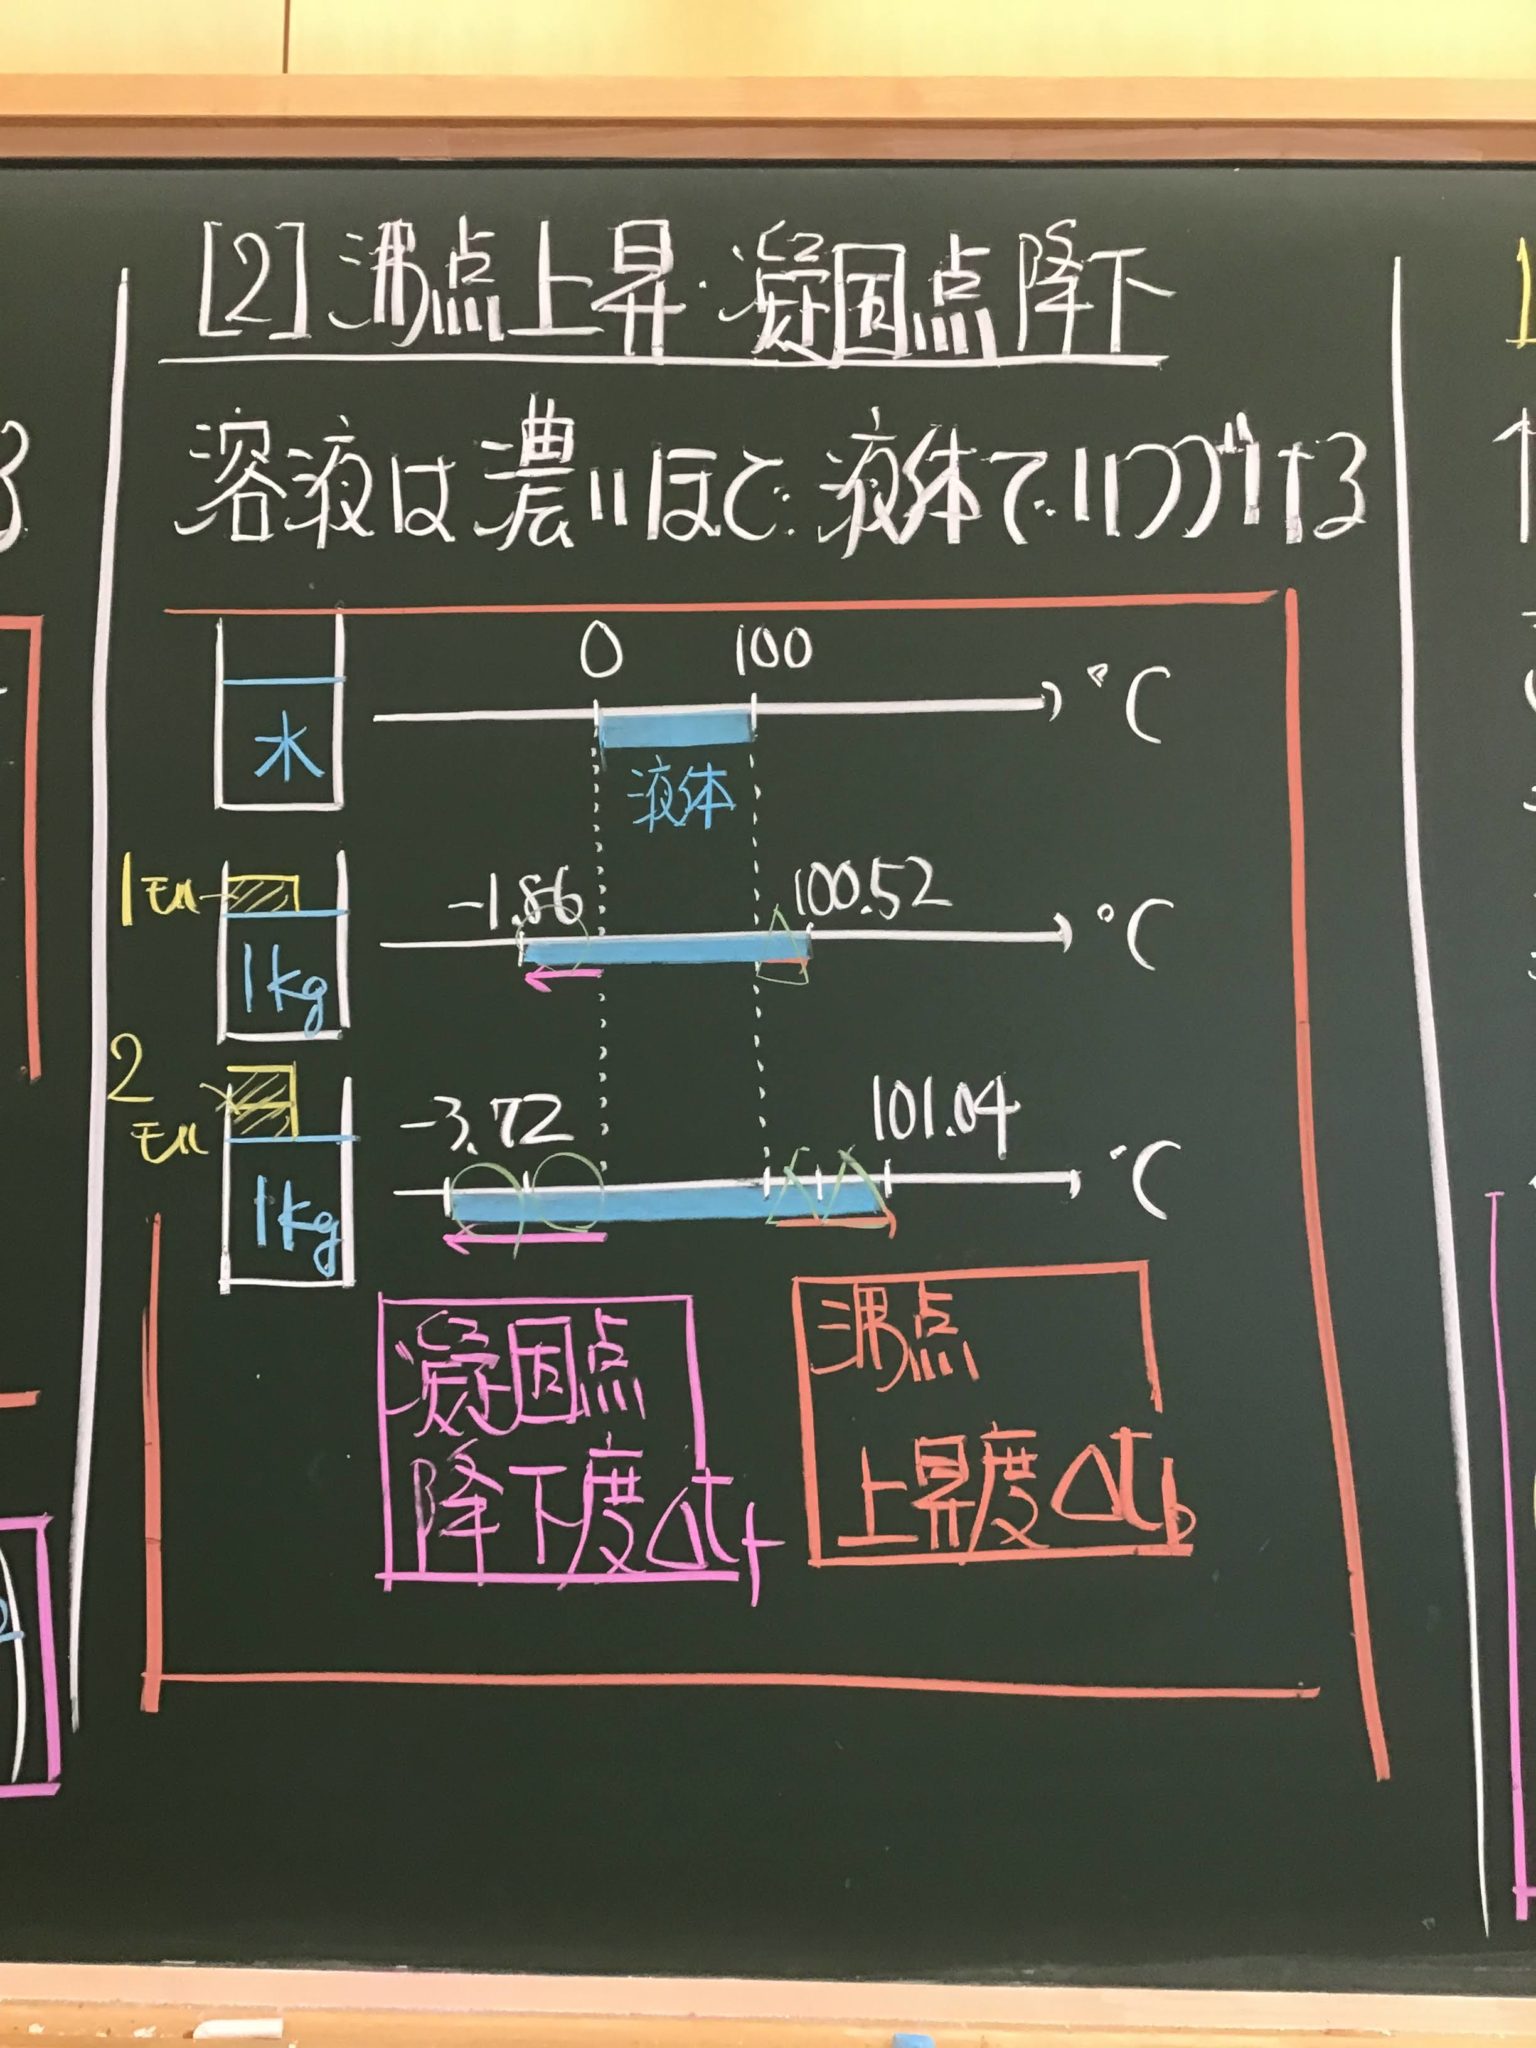 [2] 沸点上昇・凝固点降下
溶液は濃いほど液体でいつづける
0 100 °C
水
液体
1モル
-1.86 100.52 °C
1kg
2モル
-3.72 101.04 °C
1kg
凝固点
降下度Δtf
沸点
上昇度Δtb